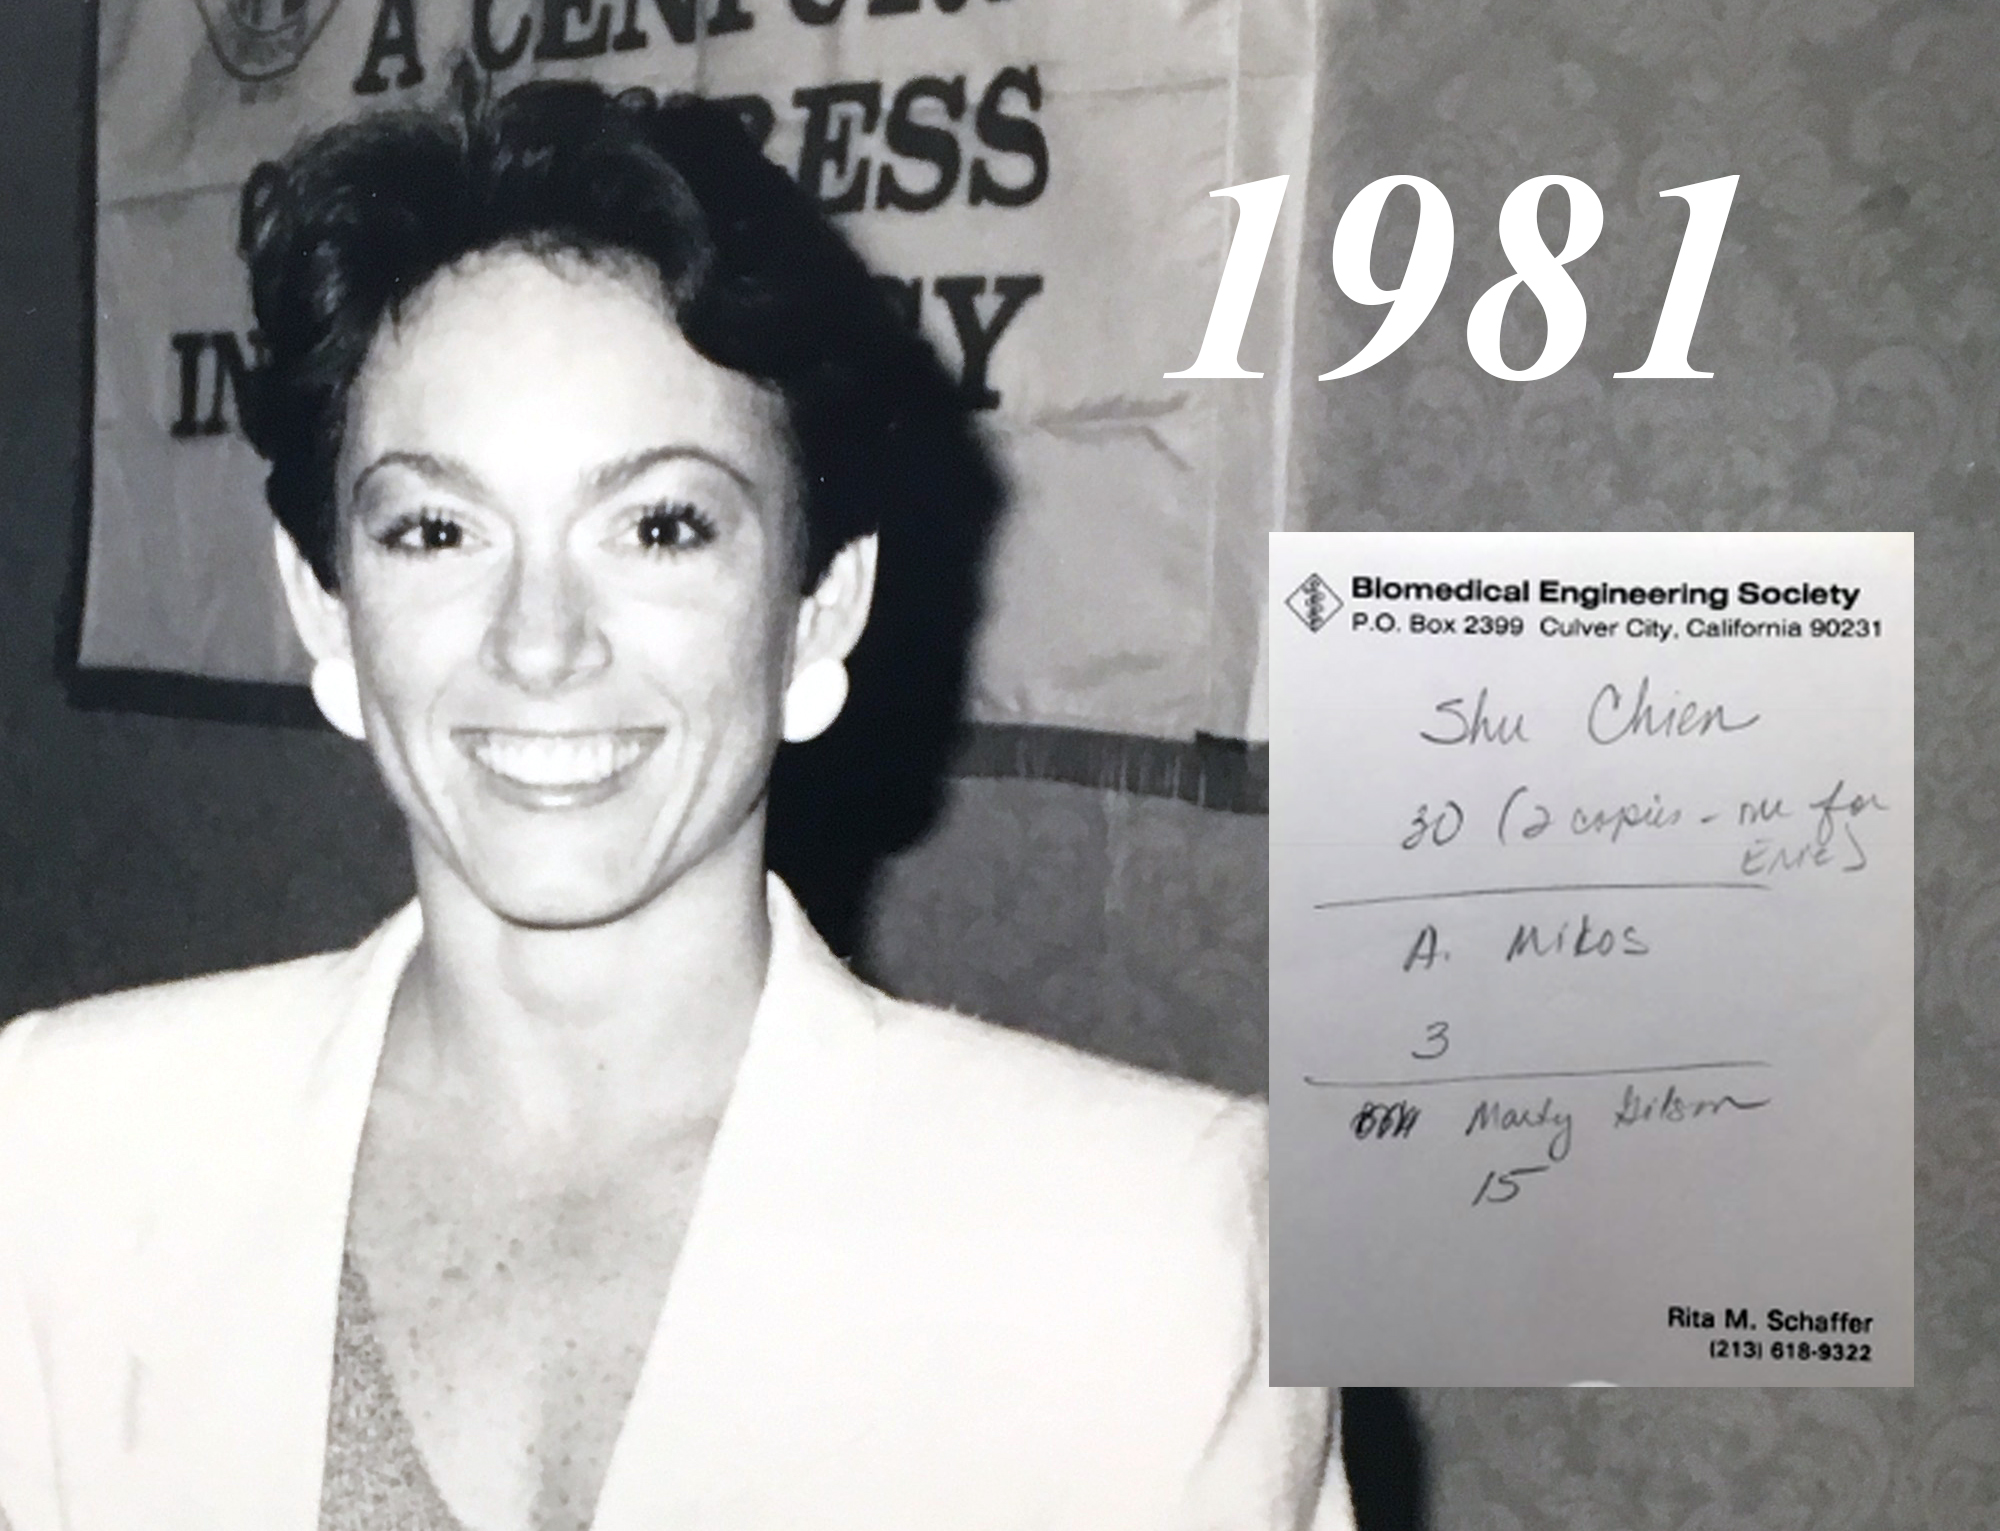 A CENTUR
RESS
IN GY
1981
Biomedical Engineering Society
P.O. Box 2399 Culver City, California 90231
Shu Chien
30 (2 copies - one for
A. Mikos
3
Marty Gilson
15
Rita M. Schaffer
(213) 618-9322